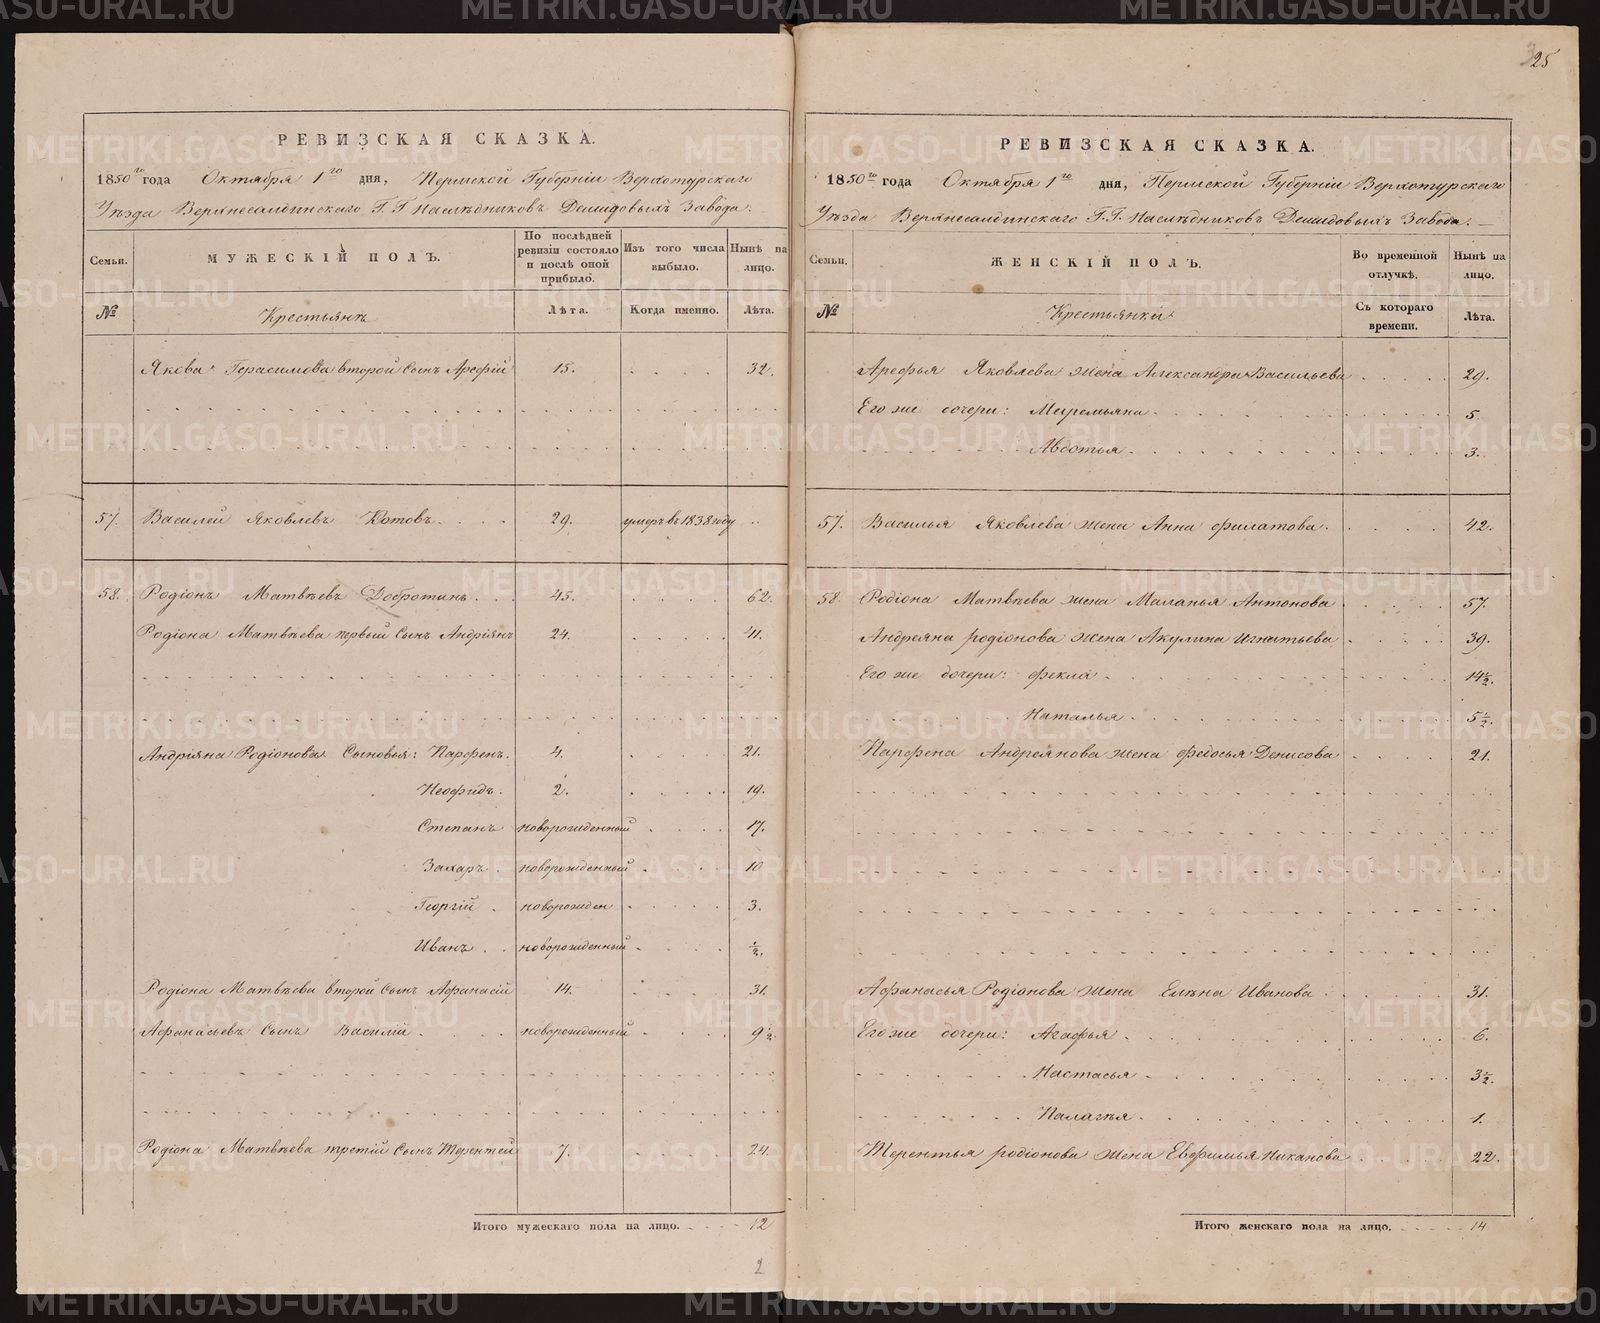 25
РЕВИЗСКАЯ СКАЗКА.
1850го года Октября 1го дня, Пермской Губерніи Верхотурскаго
Уѣзда Верхнесалдинскаго Г.Г Наслѣдниковъ Демидовыхъ Завода.
Семьи. МУЖЕСКІЙ ПОЛЪ. По послѣдней ревизіи состояло и послѣ оной прибыло. Изъ того числа выбыло. Нынѣ на лицо.
№ Крестьянъ Лѣта. Когда именно. Лѣта.
Якова Герасимова второй Сынъ Арефій 15. 32.
57. Василей Яковлевъ Котовъ 29. умеръ въ 1838 году
58. Родіонъ Матвѣевъ Добротинъ 45. 62.
Родіона Матвѣева первый Сынъ Андріянъ 24. 41.
Андріяна Родіонова Сыновья: Парфенъ. 4. 21.
Неофидъ. 2. 19.
Степанъ новорожденный 17.
Захаръ новорожденный 10
Георгій новорожден 3.
Иванъ новорожденный ½.
Родіона Матвѣева второй Сынъ Афанасій 14. 31.
Афанасьевъ Сынъ Василій новорожденный 9½
Родіона Матвѣева третій Сынъ Терентей 7. 24.
Итого мужескаго пола на лицо. 12
2
РЕВИЗСКАЯ СКАЗКА.
1850го года Октября 1го дня, Пермской Губерніи Верхотурскаго
Уѣзда Верхнесалдинскаго Г.Г. Наслѣдниковъ Демидовыхъ Завода.
Семьи. ЖЕНСКІЙ ПОЛЪ. Во временной отлучкѣ. Нынѣ на лицо.
№ Крестьянки Съ котораго времени. Лѣта.
Арефья Яковлева жена Александра Васильева 29.
Его же дочери: Миремьяна 5.
Авдотья 3.
57. Василья Яковлева жена Анна Филатова 42.
58. Родіона Матвѣева жена Маланья Антонова 57.
Андреяна родіонова жена Акулина Игнатьева 39.
Его же дочери: Фекла 14½.
Наталья 5½.
Парфена Андреянова жена Федосья Денисова 21.
Афанасья Родіонова жена Елѣна Иванова 31.
Его же дочери: Агафья 6.
Настасья 3½.
Палагѣя 1.
Терентья родіонова жена Евфимья Никанова 22.
Итого женскаго пола на лицо. 14
METRIKI.GASO-URAL.RU